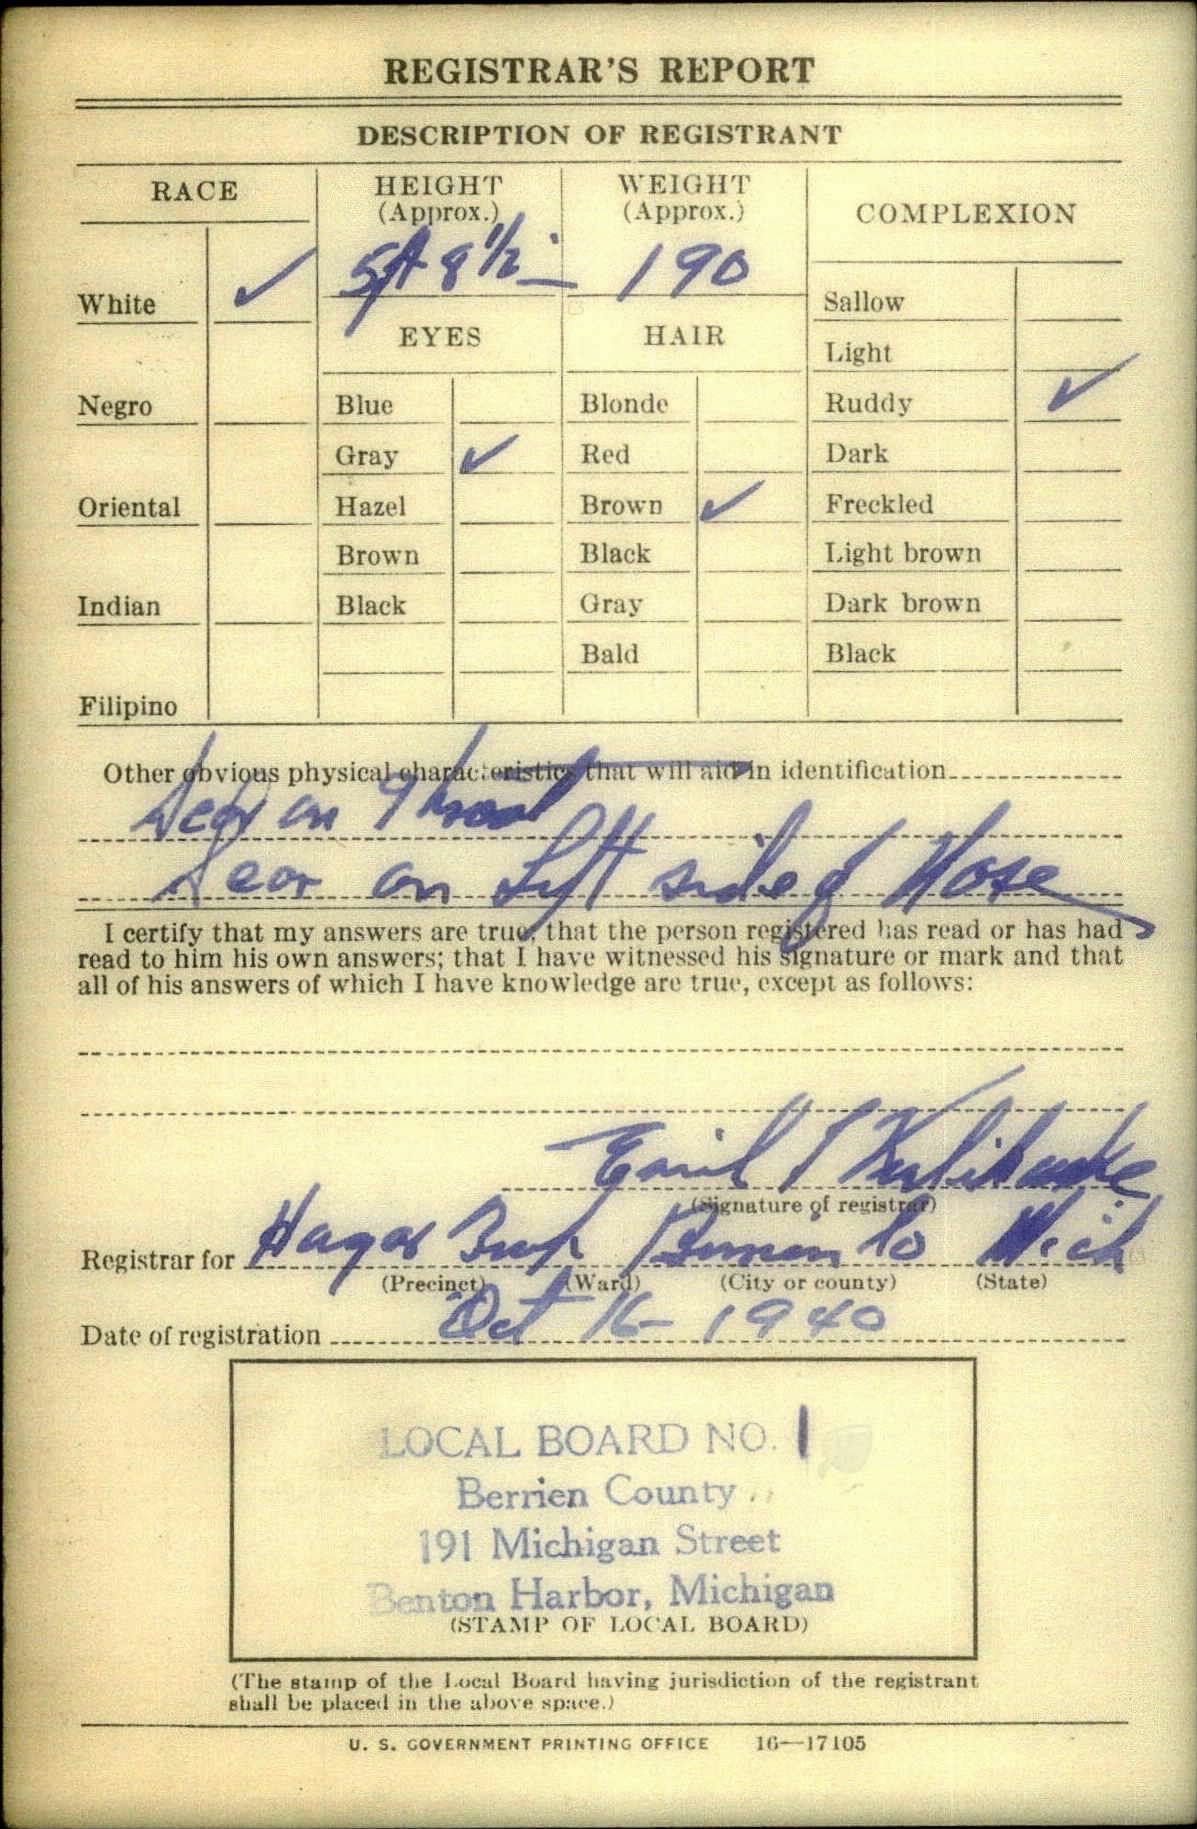 REGISTRAR'S REPORT
DESCRIPTION OF REGISTRANT
RACE
HEIGHT
(Approx.)
WEIGHT
(Approx.)
COMPLEXION
5ft 8 1/2"
190
White ✓
Sallow
EYES
HAIR
Light
Negro
Blue
Blonde
Ruddy ✓
Gray ✓
Red
Dark
Oriental
Hazel
Brown ✓
Freckled
Brown
Black
Light brown
Indian
Black
Gray
Dark brown
Bald
Black
Filipino
Other obvious physical characteristics that will aid in identification
Scar on Throat
Scar on Left side of Nose
I certify that my answers are true; that the person registered has read or has had
read to him his own answers; that I have witnessed his signature or mark and that
all of his answers of which I have knowledge are true, except as follows:
Emil
(Signature of registrar)
Registrar for Hagar Twp Berrien Co Mich
(Precinct) (Ward) (City or county) (State)
Date of registration Oct 16 - 1940
LOCAL BOARD NO. 1
Berrien County
191 Michigan Street
Benton Harbor, Michigan
(STAMP OF LOCAL BOARD)
(The stamp of the Local Board having jurisdiction of the registrant
shall be placed in the above space.)
U. S. GOVERNMENT PRINTING OFFICE 16—17105